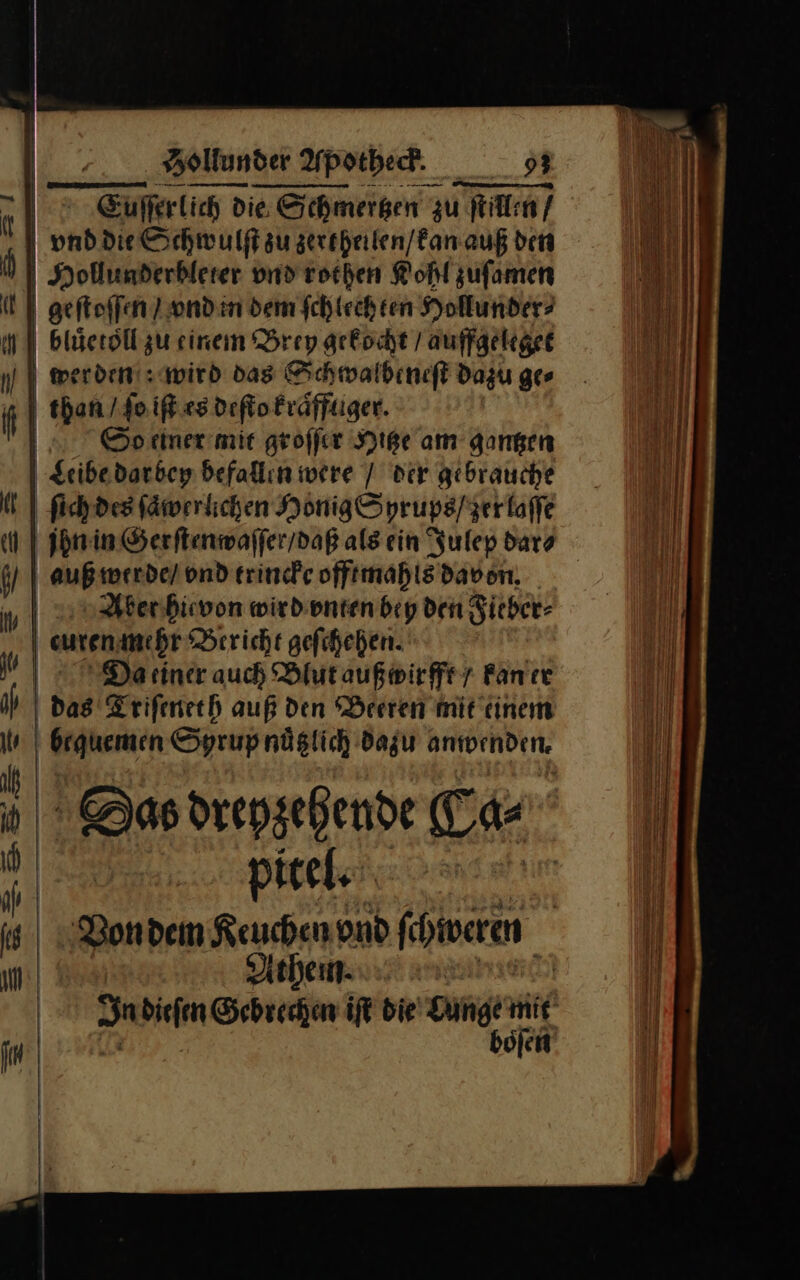 Hollunder Apotheck. 93
Eusserlich die Schmertzen zu stillen /
vnd die Schwulst zu zertheilen/kan auß den
Hollunderbleter vnd rothen Kohl zusamen
gestossen / vnd in dem schlechten Hollunder⸗
blůetoͤll zu einem Brey gekocht / auffgeleget
werden : wird das Schwalbenest dazu ge⸗
than / so ist es desto kraͤfftiger.
So einer mit grosser Hitze am gantzen
Leibe darbey befallen were / der gebrauche
sich des saͤwerlichen HonigSyrups/zerlasse
jhn in Gerstenwasser/daß als ein Julep dar⸗
auß werde/ vnd trincke offtmahls davon.
Aber hievon wird vnten bey den Fieber⸗
curen mehr Bericht geschehen.
Da einer auch Blut außwirfft / kan er
das Triseneth auß den Beeren mit einem
bequemen Syrup nůtzlich dazu anwenden.
Das dreyzehende Ca⸗
pitel.
Von dem Keuchen vnd schweren
Athem.
In diesen Gebrechen ist die Lunge mit
boͤsen